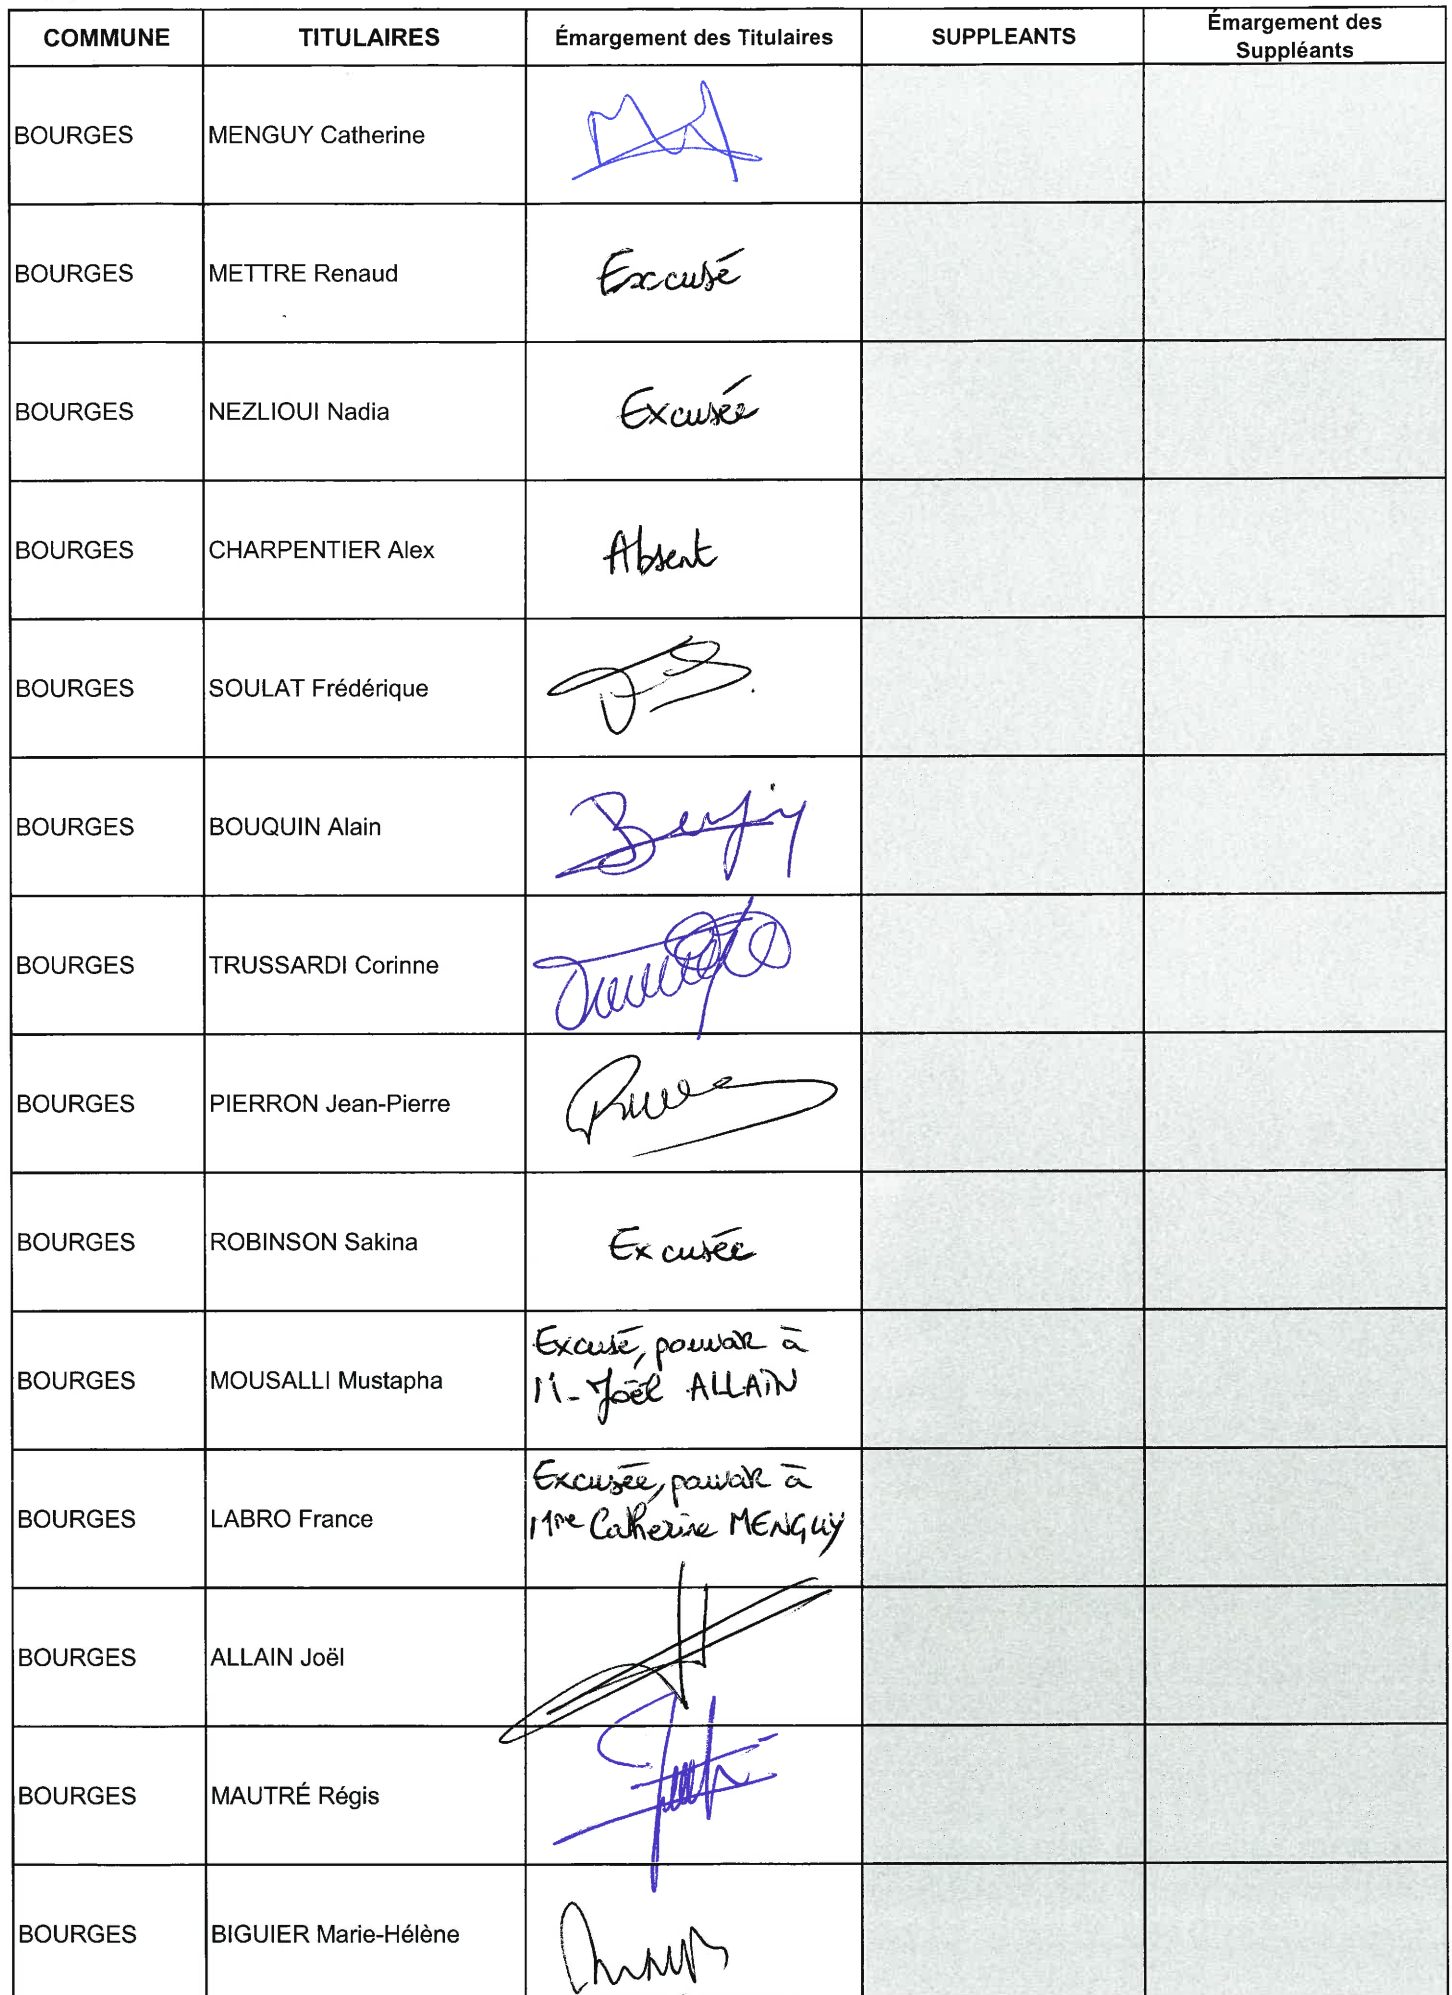 COMMUNE TITULAIRES Émargement des Titulaires SUPPLEANTS Émargement des
Suppléants
BOURGES MENGUY Catherine
BOURGES METTRE Renaud Excusé
BOURGES NEZLIOUI Nadia Excusée
BOURGES CHARPENTIER Alex Absent
BOURGES SOULAT Frédérique
BOURGES BOUQUIN Alain
BOURGES TRUSSARDI Corinne
BOURGES PIERRON Jean-Pierre
BOURGES ROBINSON Sakina Excusée
Excusé, pouvoir à
BOURGES MOUSALLI Mustapha M. Joël ALLAIN
Excusée, pouvoir à
BOURGES LABRO France Mme Catherine MENGUY
BOURGES ALLAIN Joël
BOURGES MAUTRÉ Régis
BOURGES BIGUIER Marie-Hélène